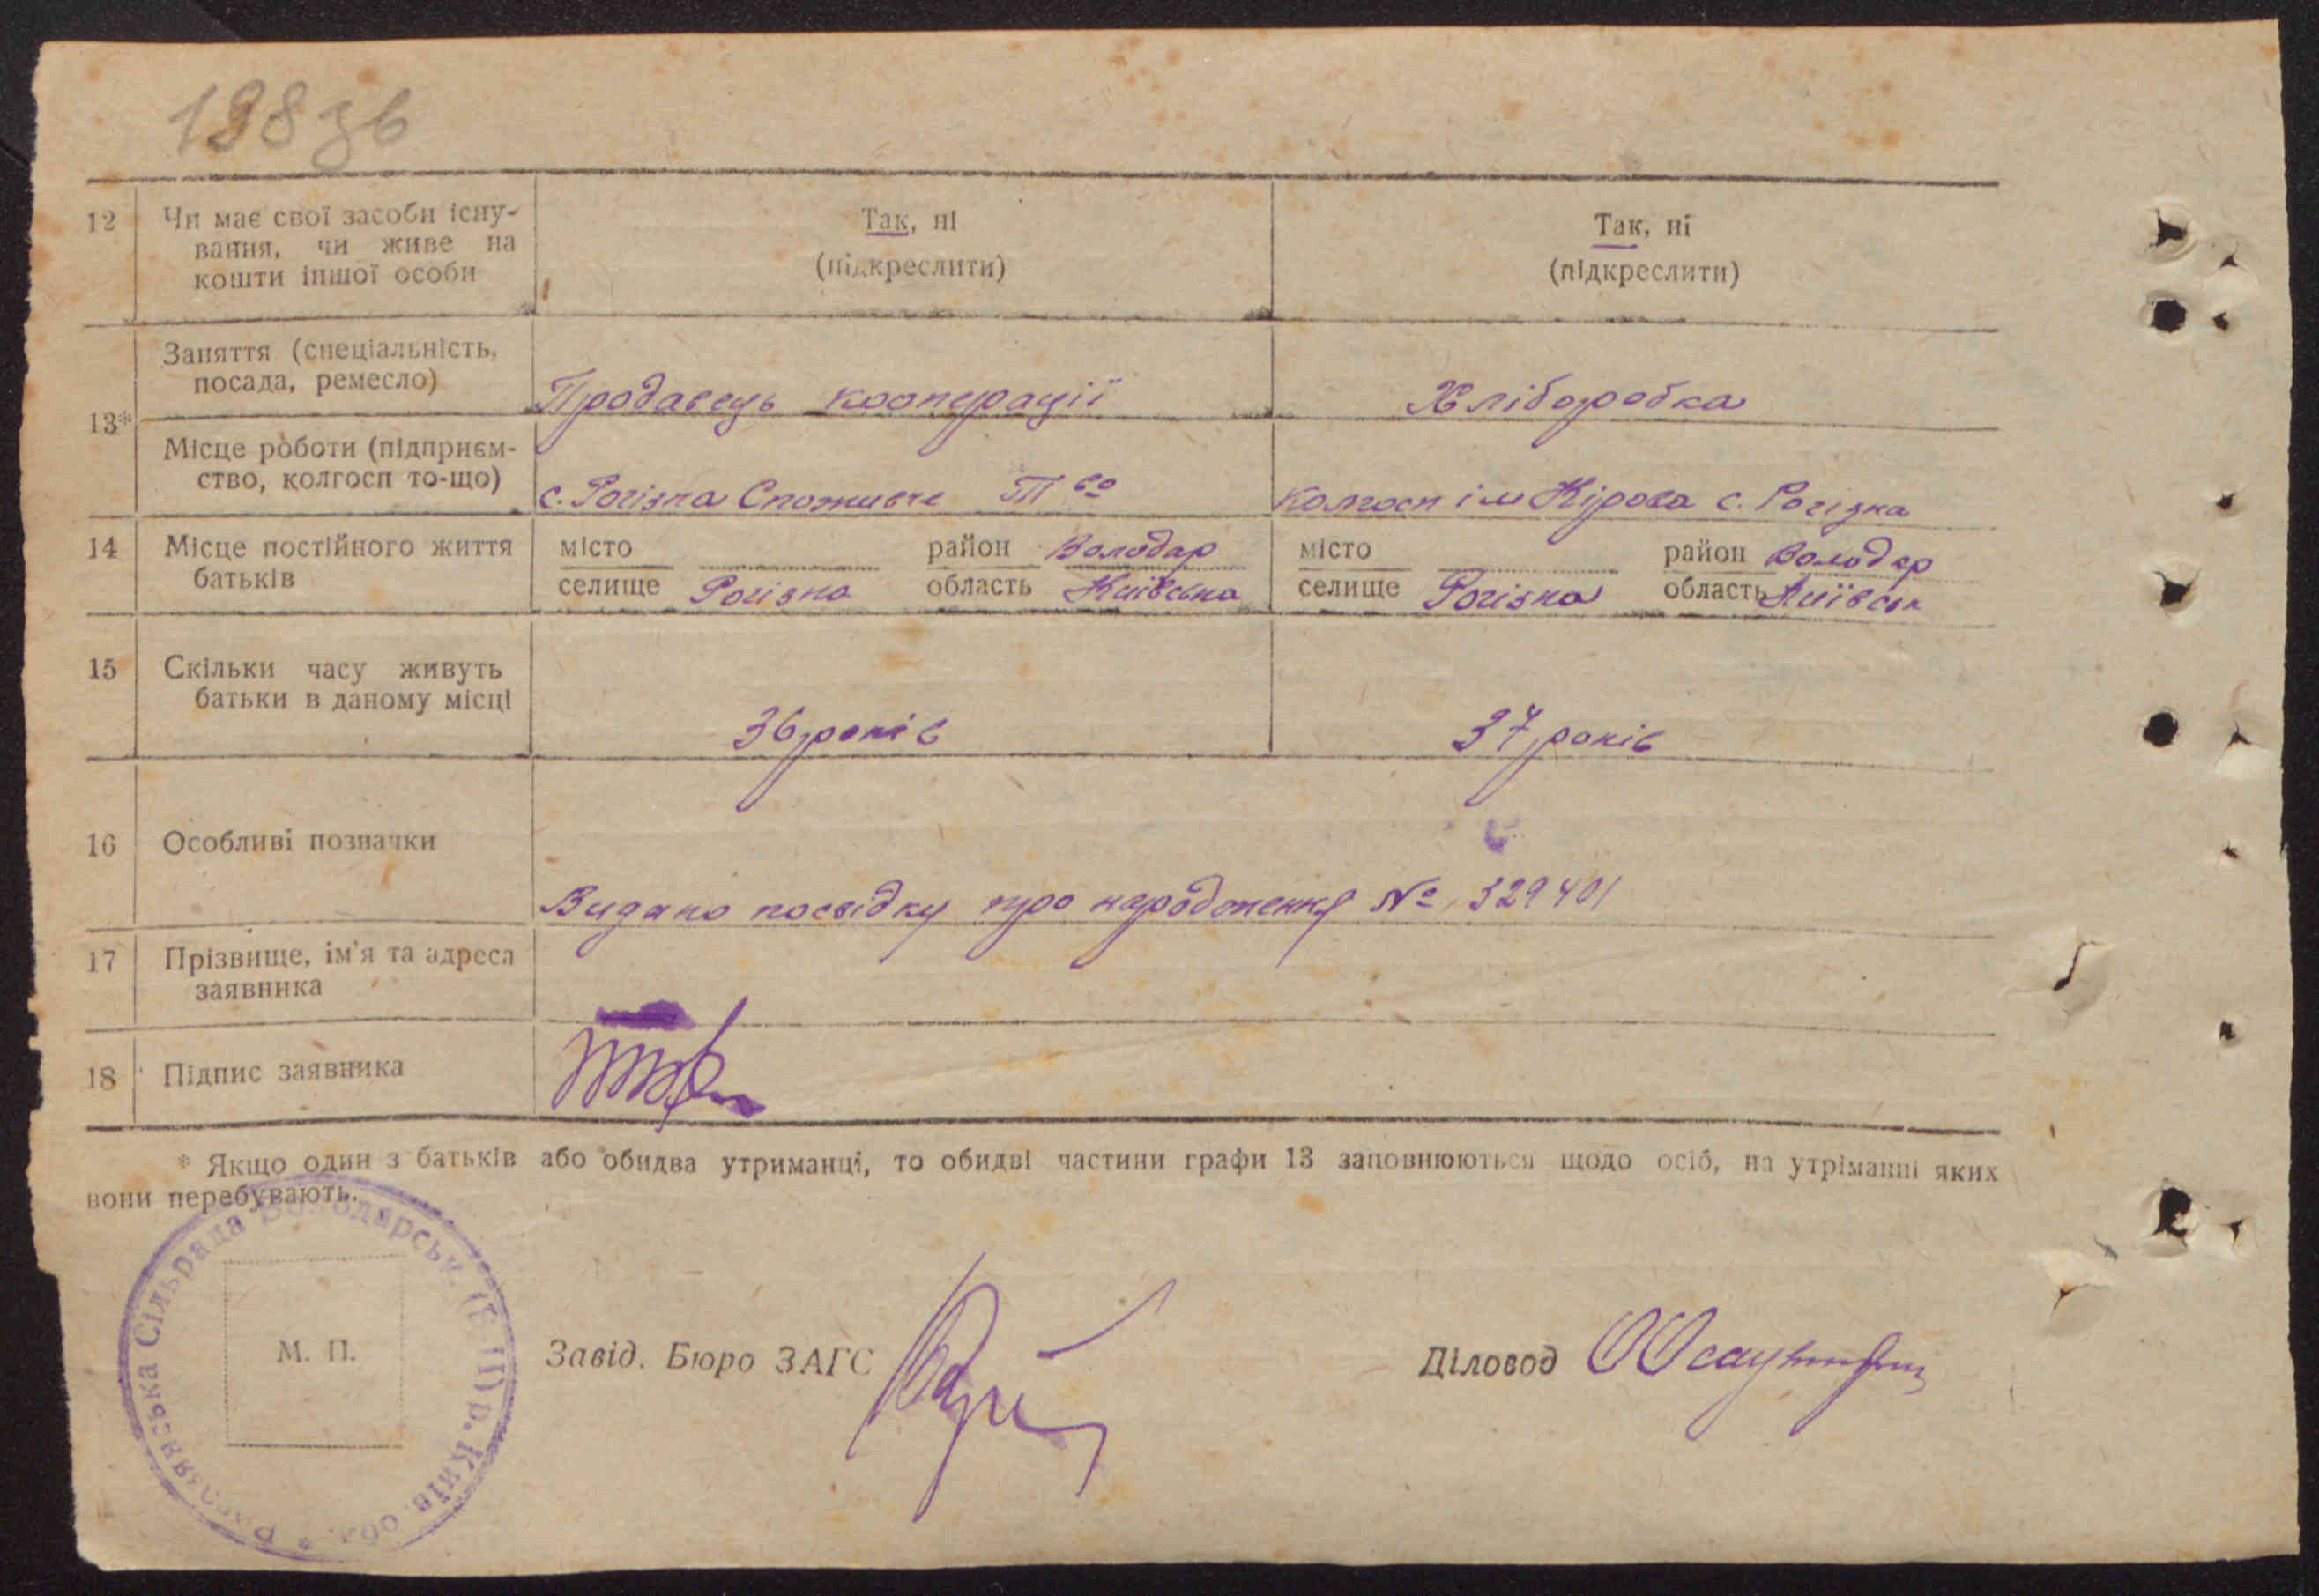 198 зв
12 Чи має свої засоби існу-
вання, чи живе на
кошти іншої особи
Так, ні
(підкреслити)
Так, ні
(підкреслити)
13*
Заняття (спеціальність,
посада, ремесло)
Продавець кооперації
Хліборобка
Місце роботи (підприєм-
ство, колгосп то-що)
с. Рогізна Споживче Т во
колгосп ім Кірова с. Рогізна
14 Місце постійного життя
батьків
місто район Володар
селище Рогізна область Київська
місто район Володар
селище Рогізна область Київськ
15 Скільки часу живуть
батьки в даному місці
36 років
37 років
16 Особливі позначки
Видано посвідку про народження № 329401
17 Прізвище, ім'я та адреса
заявника
18 Підпис заявника
* Якщо один з батьків або обидва утриманці, то обидві частини графи 13 заповнюються щодо осіб, на утріманні яких
вони перебувають.
Сільрада Володарськ р. Київ. обл. *
М. П.
Завід. Бюро ЗАГС
Діловод